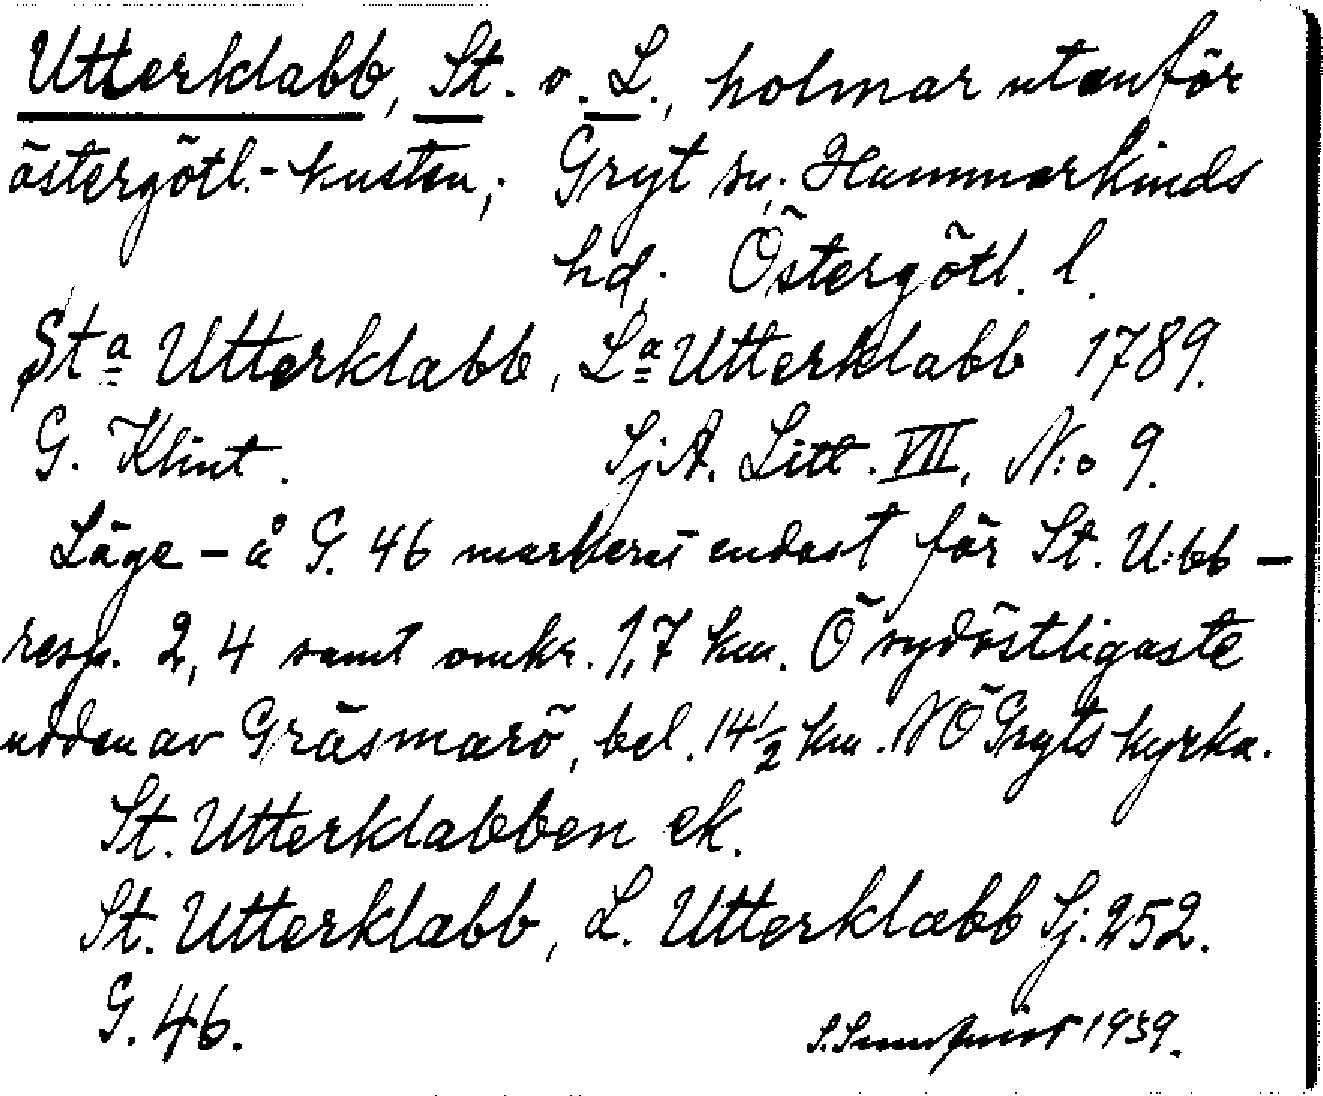 Utterklabb, St. o. L., holmar utanför
östergötl.-kusten; Gryt sn; Hammarkinds
hd; Östergötl. l.
St<u>a</u> Utterklabb, L<u>a</u> Utterklabb 1789.
G. Klint. SjA. Litt. VII, N:o 9.
Läge – å G. 46 markerat endast för St. U:bb –
resp. 2,4 samt omkr. 1,7 km. Ö sydöstligaste
udden av Gräsmarö, bel. 14 1/2 km. NÖ Gryts kyrka.
St. Utterklabben ek.
St. Utterklabb, L. Utterklabb Sj. 252.
G. 46.
S. Sundquist 1939.